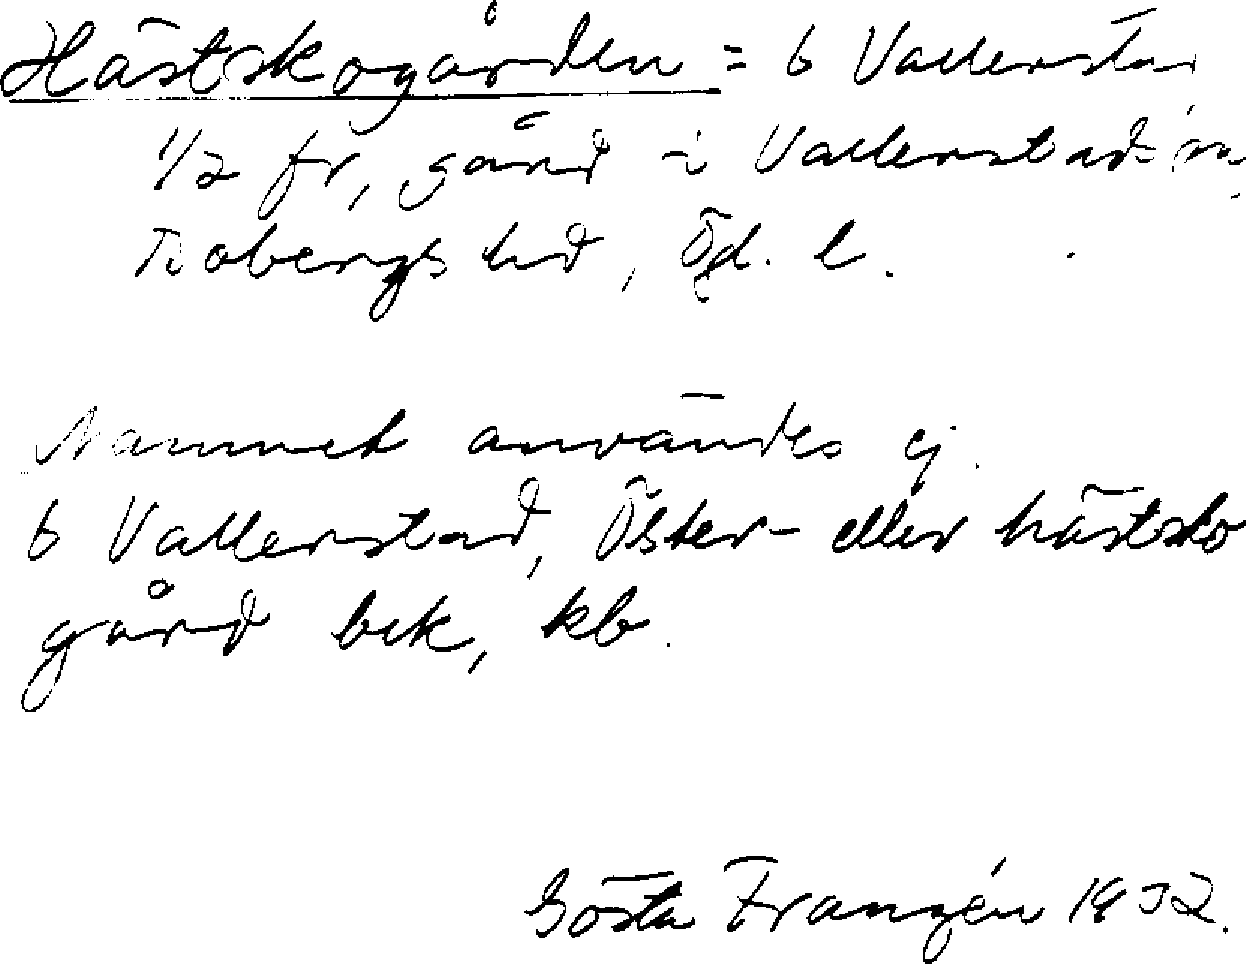 Hästskogården = 6 Vallerstad
1/2 fr, gård i Vallerstads sn,
Bobergs hd, Ögl. l.
Namnet användes ej.
6 Vallerstad, Öster- eller hästsko
gård bek, kb.
Gösta Franzén 1932.